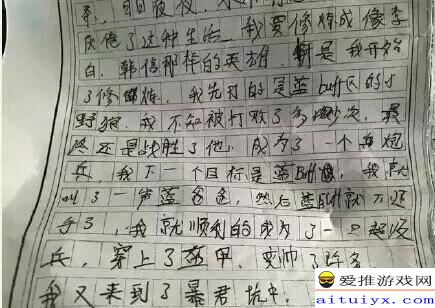 厌倦了这种生活,我要修炼成像李
白、韩信那样的英雄,于是我开始
了修炼,我先打的是蓝buff区的小
野狼,我不知被打败了多少次,最
终还是战胜了他,成为了一个炮
兵,我下一个目标是蓝buff,我就
叫了一声蓝爸爸,然后蓝buff就不还
手了,我就顺利的成为了一只超级
兵,穿上了盔甲,变帅了许多
我又来到了暴君坑中
爱推游戏网
aituiyx.com